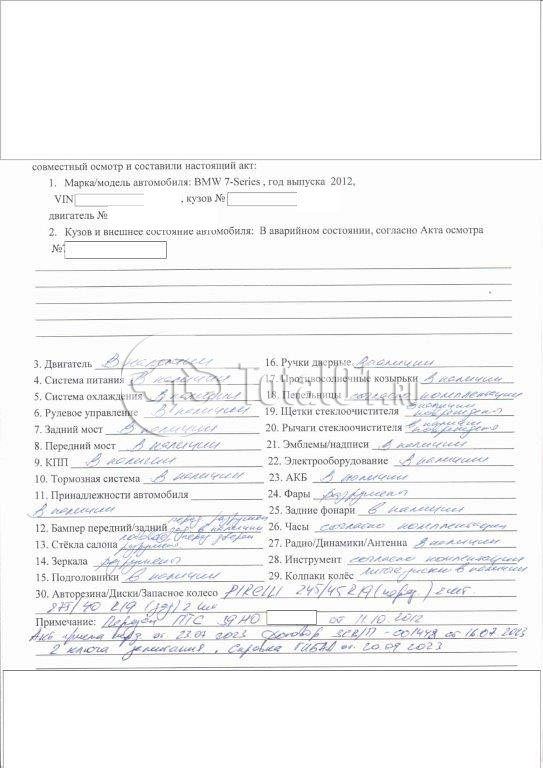 совместный осмотр и составили настоящий акт:
1. Марка/модель автомобиля: BMW 7-Series , год выпуска 2012,
VIN , кузов №
двигатель №
2. Кузов и внешнее состояние автомобиля: В аварийном состоянии, согласно Акта осмотра
№
TotalDT.ru
3. Двигатель В наличии
4. Система питания В наличии
5. Система охлаждения В наличии
6. Рулевое управление В наличии
7. Задний мост В наличии
8. Передний мост В наличии
9. КПП В наличии
10. Тормозная система В наличии
11. Принадлежности автомобиля
В наличии
12. Бампер передний/задний перед разрушен зад в наличии
13. Стёкла салона перед двери
14. Зеркала разрушены
15. Подголовники В наличии
16. Ручки дверные В наличии
17. Противосолнечные козырьки В наличии
18. Пепельницы согласно комплектации
19. Щетки стеклоочистителя в наличии
20. Рычаги стеклоочистителя в наличии
21. Эмблемы/надписи В наличии
22. Электрооборудование В наличии
23. АКБ В наличии
24. Фары разрушены
25. Задние фонари В наличии
26. Часы согласно комплектации
27. Радио/Динамики/Антенна В наличии
28. Инструмент согласно комплектации
29. Колпаки колёс литые диски в наличии
30. Авторезина/Диски/Запасное колесо PIRELLI 245/45 R19 (перед) 2 шт.
275/40 R19 (зад) 2 шт
Примечание: Передан ПТС 39 НО от 11.10.2012
Акт от 23.07 2013 Договор от 16.07.2013
2 ключа зажигания, Справка ГИБДД от 2013